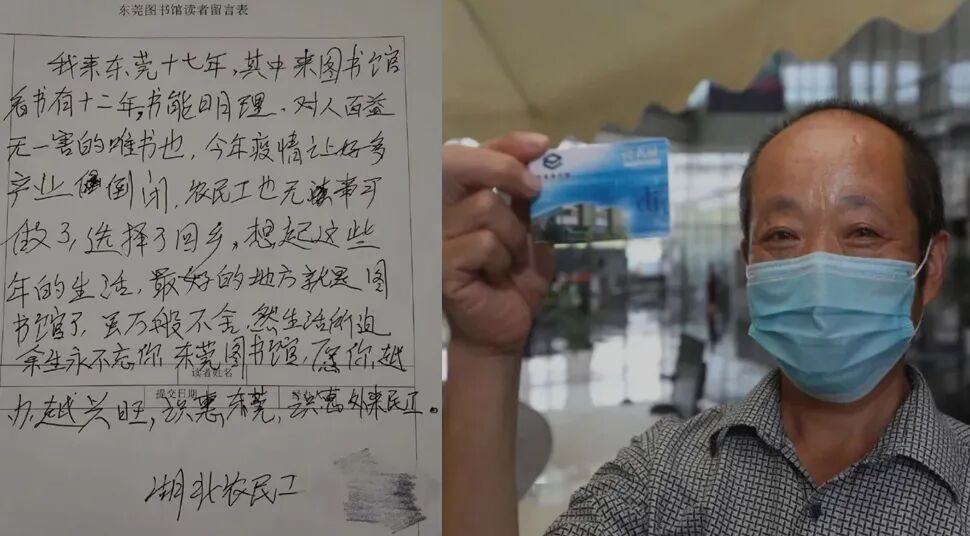 东莞图书馆读者留言表
我来东莞十七年,其中来图书馆
看书有十二年,书能明理、对人百益
无一害的唯书也,今年疫情让好多
产业倒闭,农民工也无事可
做了,选择了回乡,想起这些
年的生活,最好的地方就是图
书馆了,虽万般不舍,然生活所迫
余生永不忘你东莞图书馆,愿你越
读者姓名
提交日期
办越兴旺,识惠东莞,识惠外来民工。
湖北农民工
di